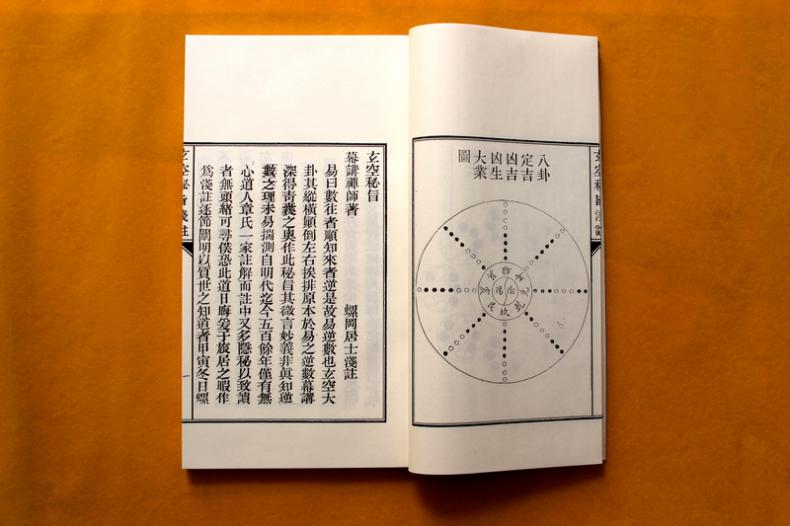 玄空秘旨淺註
八卦
定吉
凶吉
凶生
大業
圖
玄空秘旨
幕講禪師著　螺岡居士淺註
易曰數往者順知來者逆是故易逆數也玄空大
卦其縱橫顛倒左右挨排原本於易之逆數幕講
深得青囊之奧作此秘旨其微言妙義非真知逆
數之理未易揣測自明代迄今五百餘年僅有無
心道人章氏一家註解而註中又多隱秘以致讀
者無頭緒可尋僕恐此道日晦爰于旅居之暇作
為淺註逐節闡明以質世之知道者甲寅冬日螺
玄空秘旨淺註
一